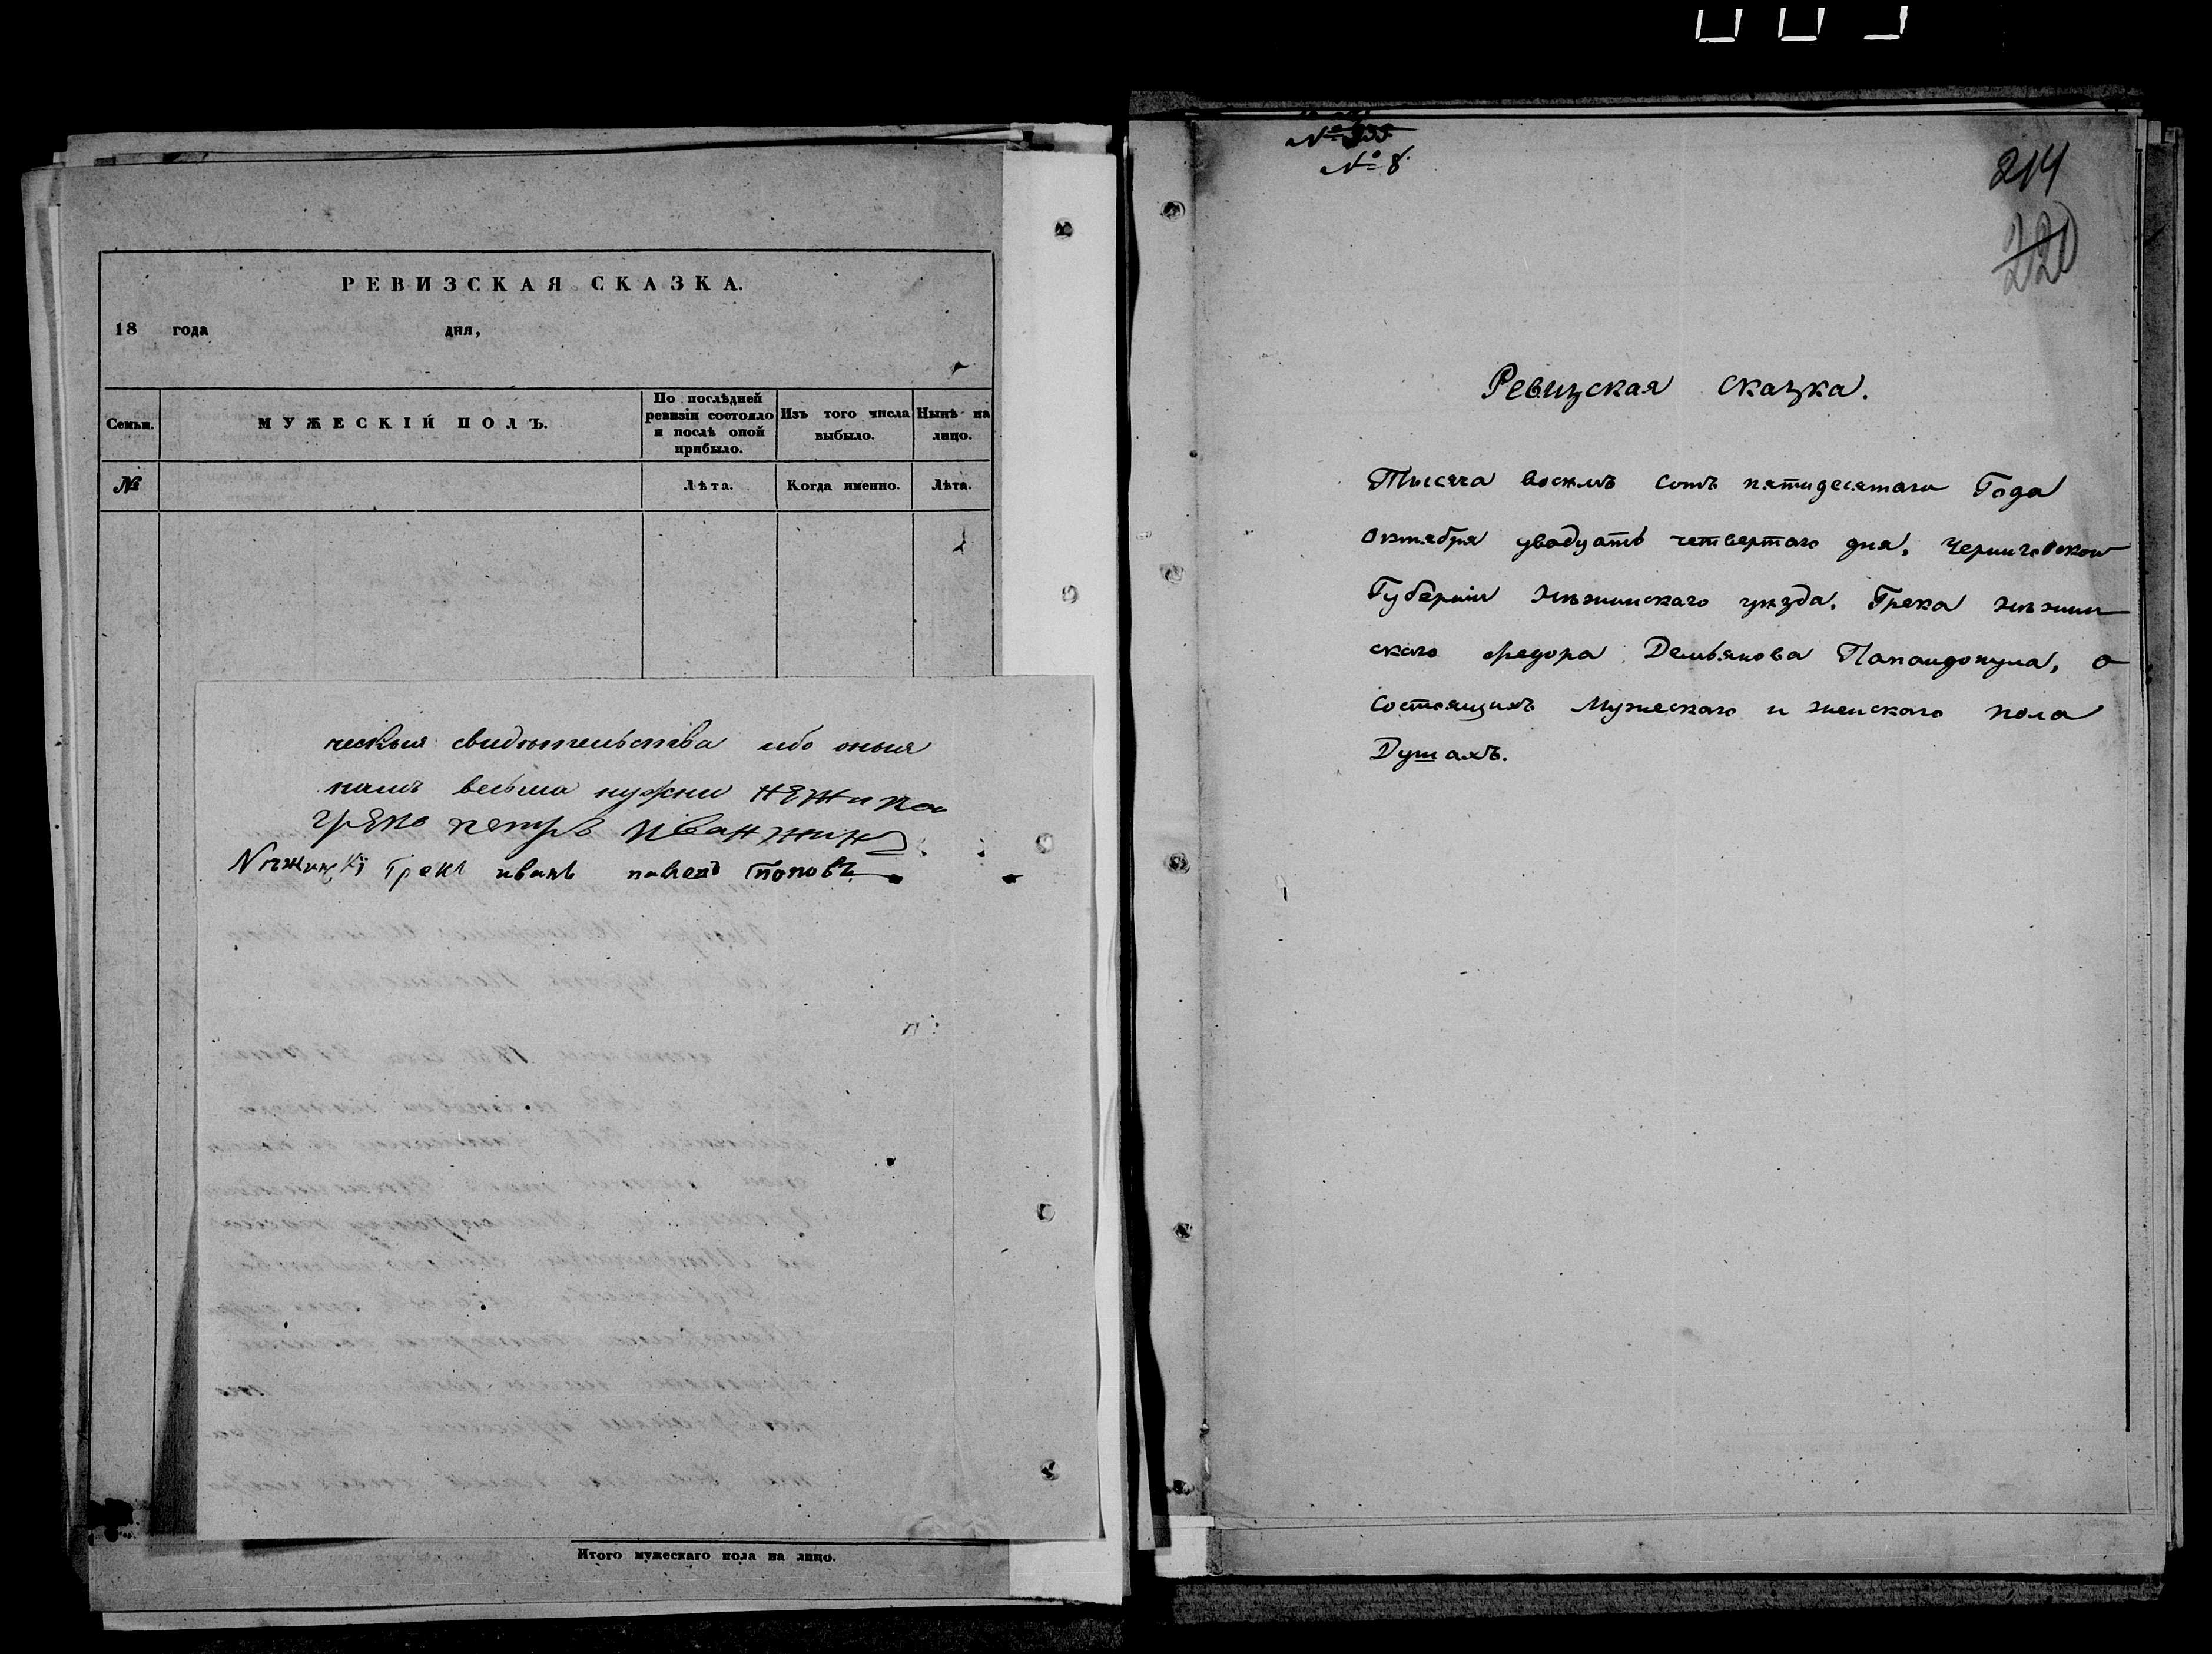 РЕВИЗСКАЯ СКАЗКА.
18 года дня,
Семьи. МУЖЕСКІЙ ПОЛЪ. По послѣдней ревизіи состояло и послѣ оной прибыло. Изъ того числа выбыло. Нынѣ на лицо.
№ Лѣта. Когда именно. Лѣта.
ческыя свидѣтельства ибо оныя
намъ весьма нужни
грекъ петръ
грекъ иванъ павелъ Поповъ
Итого мужескаго пола на лицо.
№ 8
214
220
Ревизская сказка.
Тысяча восемъ сотъ пятидесятаго Года
Октября двадцать четвертаго дня, Черниговской
Губерніи Нѣжинскаго уѣзда. Грека Нѣжин
скаго Федора Демьянова Папандопула, о
состоящихъ Мужескаго и женскаго пола
Душахъ.